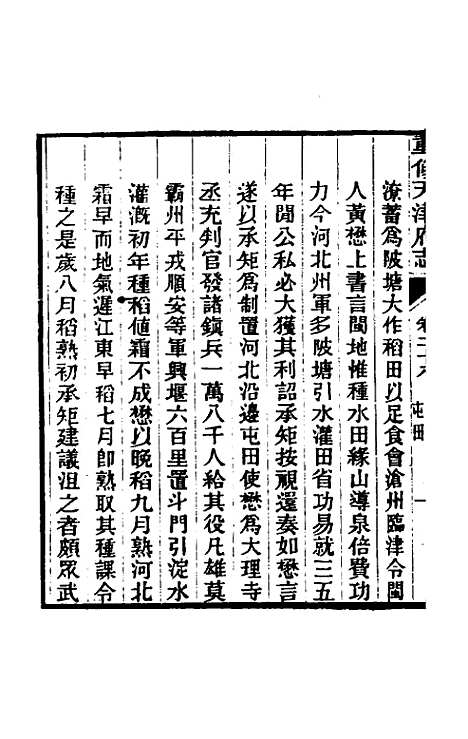 重修天津府志 卷二十八 屯田 一
潦蓄爲陂塘大作稻田以足食會滄州臨津令閩
人黃懋上書言閩地惟種水田緣山導泉倍費功
力今河北州軍多陂塘引水灌田省功易就三五
年閒公私必大獲其利詔承矩按視還奏如懋言
遂以承矩爲制置河北沿邊屯田使懋爲大理寺
丞充判官發諸鎮兵一萬八千人給其役凡雄莫
霸州平戎順安等軍興堰六百里置斗門引淀水
灌漑初年種稻値霜不成懋以晚稻九月熟河北
霜早而地氣遲江東早稻七月卽熟取其種課令
種之是歲八月稻熟初承矩建議沮之者頗眾武